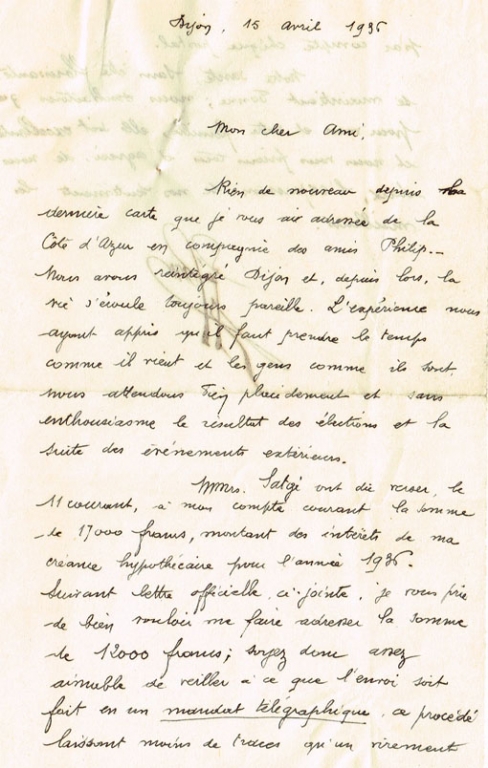 Dijon, 15 avril 1936
Mon cher Ami,
Rien de nouveau depuis la
dernière carte que je vous ai adressée de la
Côte d'Azur en compagnie des amis Philip.-
Nous avons réintégré Dijon et, depuis lors, la
vie s'écoule toujours pareille. L'expérience nous
ayant appris qu'il faut prendre le temps
comme il vient et les gens comme ils sont,
nous attendons bien placidement et sans
enthousiasme le résultat des élections et la
suite des événements extérieurs.
MMrs. Satgé ont dû verser, le
11 courant, à mon compte courant la somme
de 17000 francs, montant des intérêts de ma
créance hypothécaire pour l'année 1936.
Suivant lettre officielle, ci-jointe, je vous prie
de bien vouloir me faire adresser la somme
de 12000 francs; soyez donc assez
aimable de veiller à ce que l'envoi soit
fait en un mandat télégraphique, ce procédé
laissant moins de traces qu'un virement